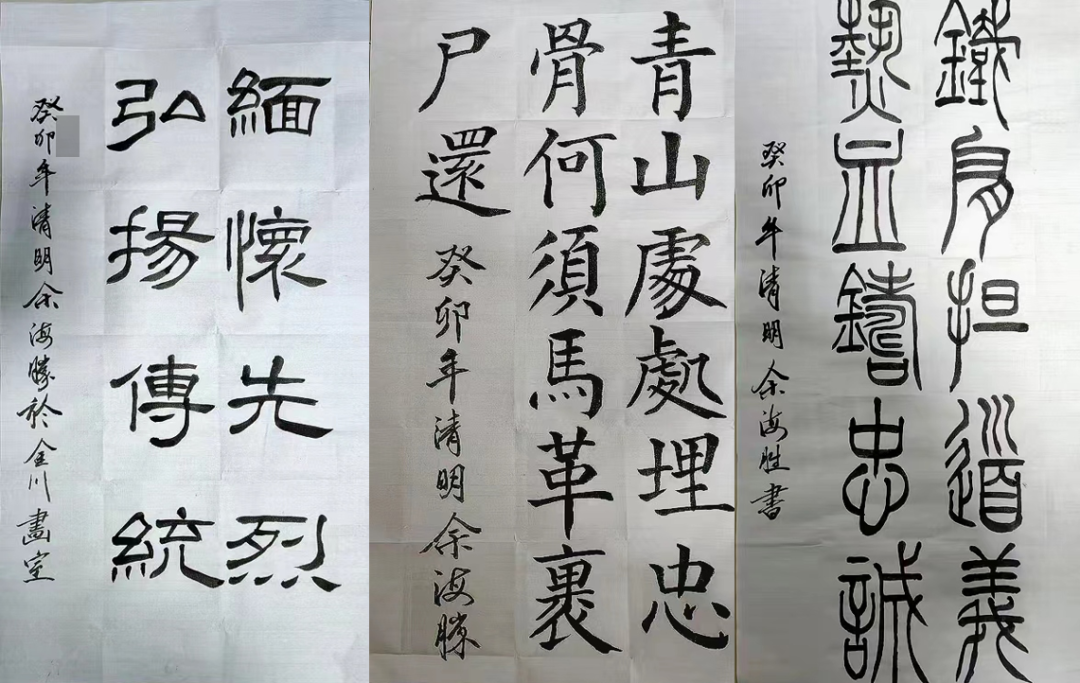 緬懷先烈
弘揚傳統
癸卯年清明余海勝於金川畫室
青山處處埋忠
骨何須馬革裹
尸還
癸卯年清明余海勝
鐵肩担道義
熱血鑄忠誠
癸卯年清明余海胜書